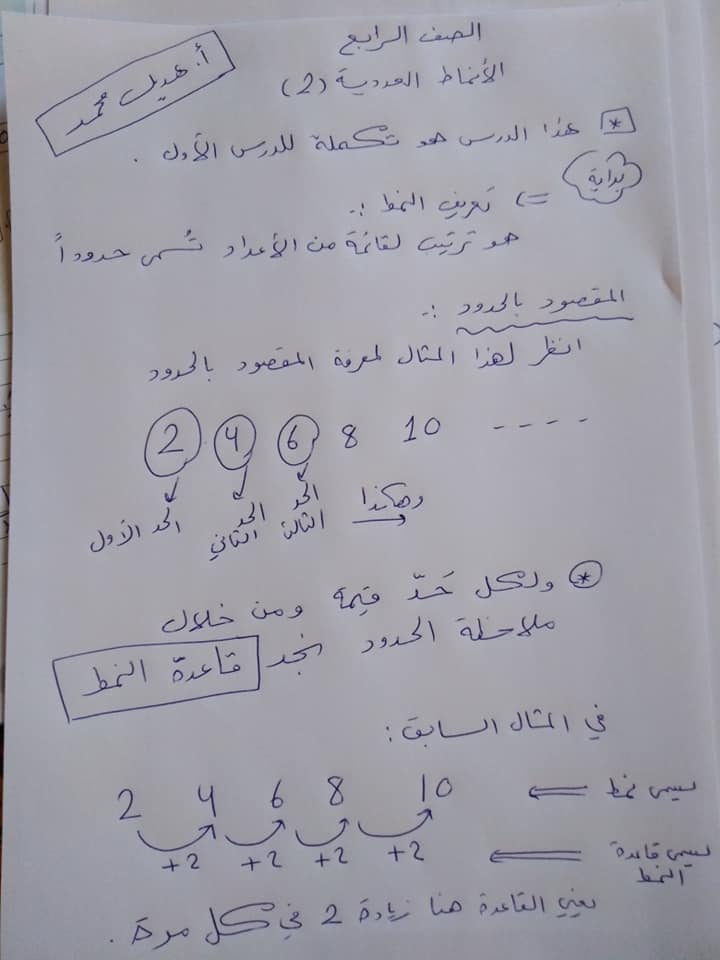 الصف الرابع
أ. هديل محمد
الأنماط العددية (2)
* هذا الدرس هو تكملة للدرس الأول .
بداية => تعريف النمط :.
هو ترتيب لقائمة من الأعداد تُسمى حدوداً
المقصود بالحدود :.
انظر لهذا المثال لمعرفة المقصود بالحدود
2 4 6 8 10 ----
الحد الأول الحد الثاني الحد الثالث وهكذا
* ولكل حَدّ قيمة ومن خلال
ملاحظة الحدود نجد قاعدة النمط
في المثال السابق :
2 4 6 8 10 يسمى نمط
+2 +2 +2 +2 يسمى قاعدة النمط
يعني القاعدة هنا زيادة 2 في كل مرة .